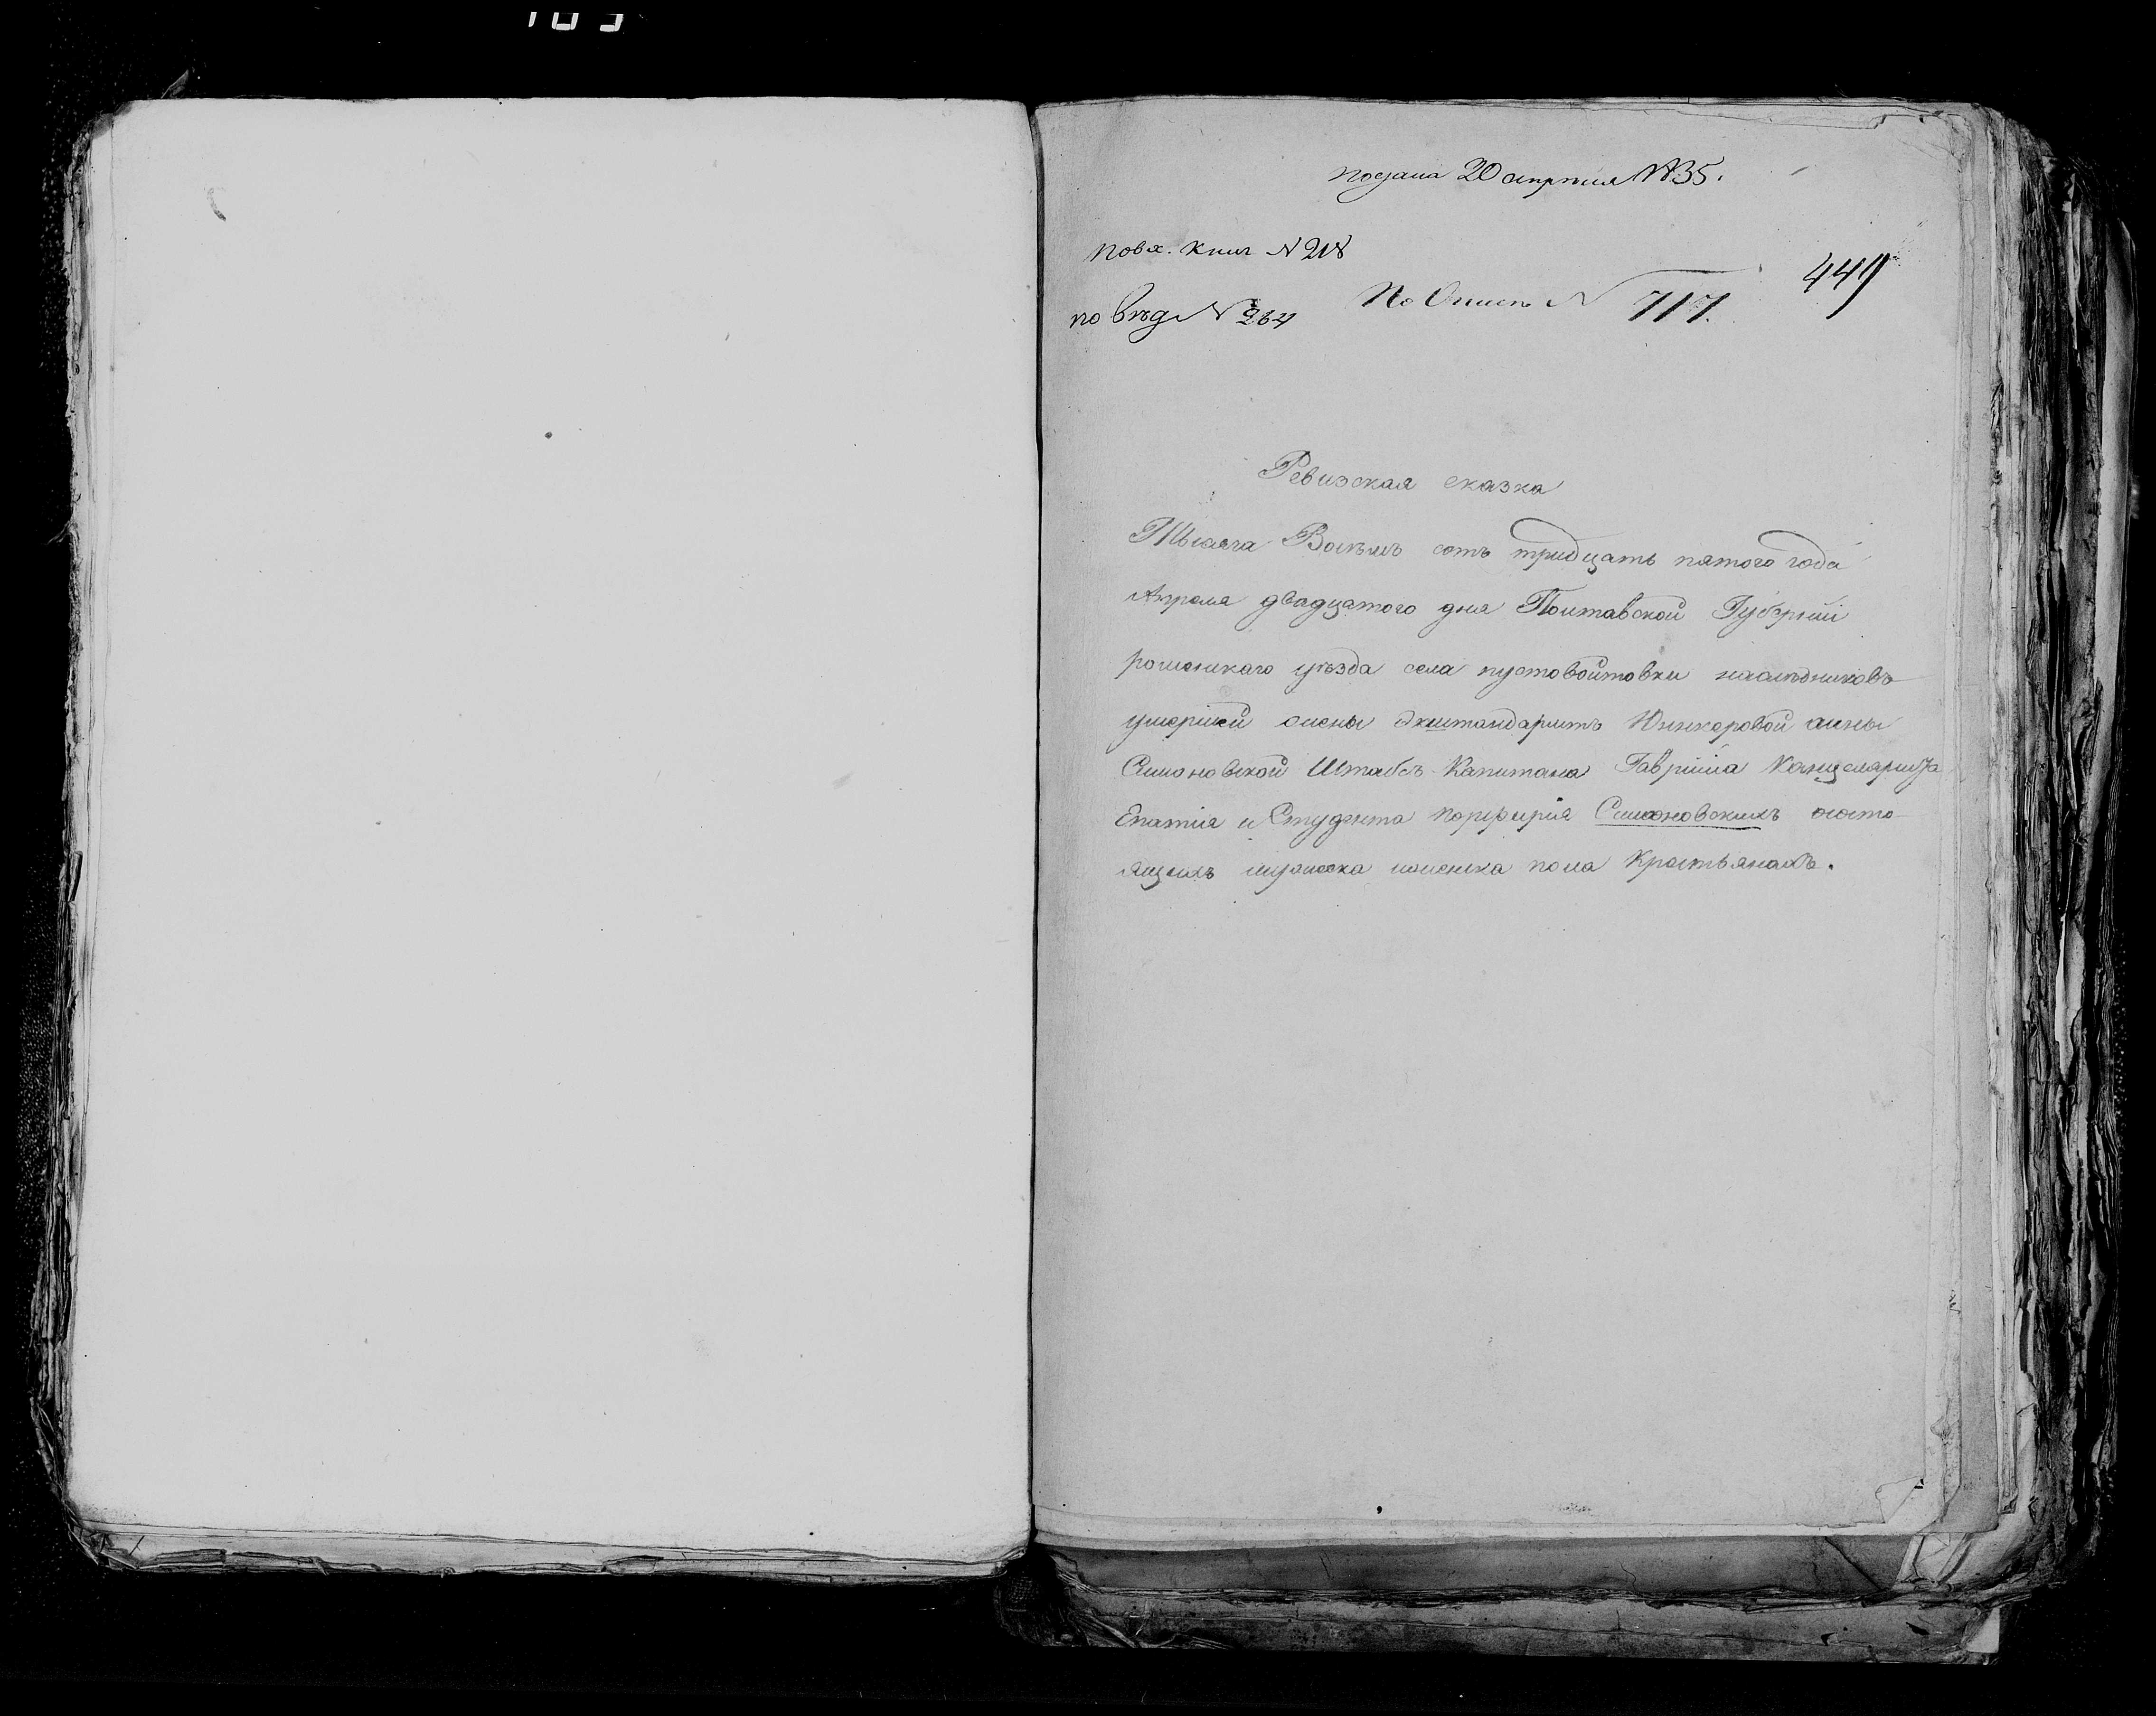 подана 20 апрѣля 1835.
по вх. книг N 218
по вѣд N 264
По Описи N 717
449
Ревизская сказка
Тысяча Восѣмъ сотъ тридцать пятого года
Апреля двадцатого дня Полтавской Губерніи
роменскаго уѣзда села пустовойтовки наслѣдниковъ
умершей Юнкеровой анны
Симоновской Штабсъ Капитана Гавріила Канцеляриста
Епатія и Студента порфирія Симоновскихъ ососто-
ящихъ мужеска иженска пола Крестьянахъ.